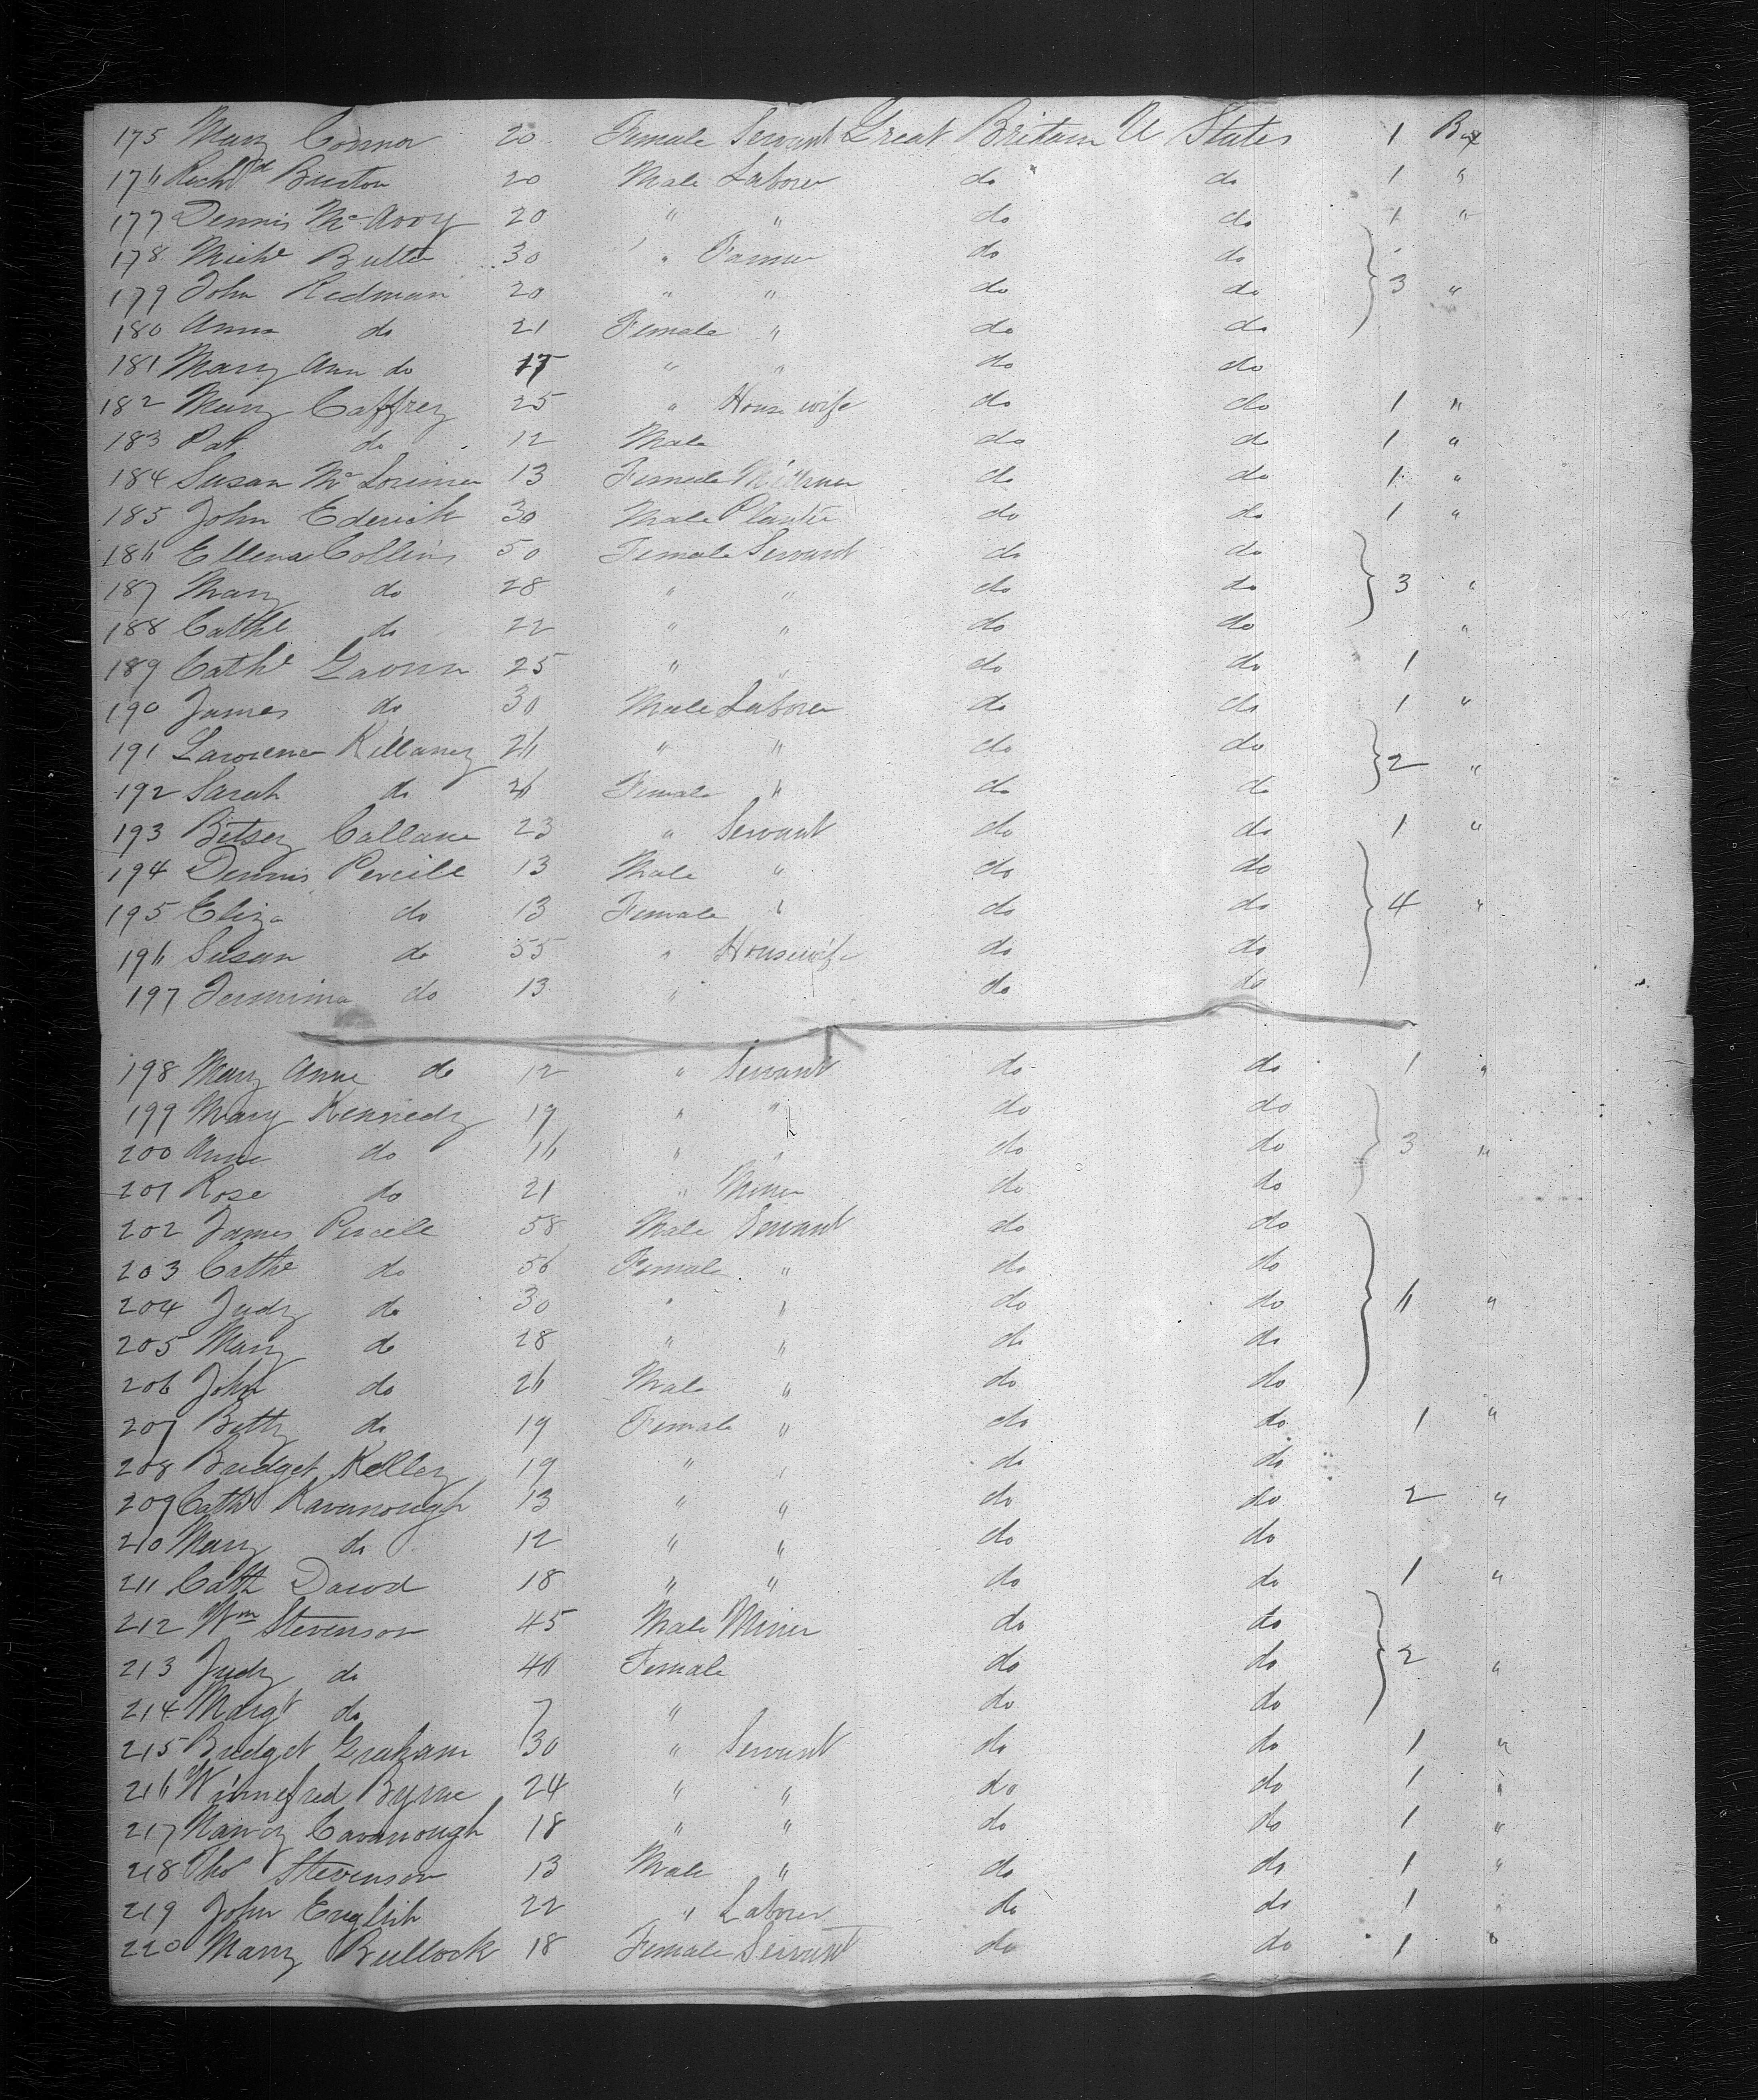 175 Mary Connor 20 Female Servant Great Britain U States 1 Box
176 Richd Burton 20 Male Laborer do do 1 "
177 Dennis McAvoy 20 " " do do 1 "
178 Michl Butler 30 " Farmer do do
179 John Redman 20 " " do do 3 "
180 Anna do 21 Female " do do
181 Mary Ann do 17 " " do do
182 Mary Caffrey 25 " House wife do do 1 "
183 Pat do 12 Male do do 1 "
184 Susan Mc Lorimer 13 Female do do 1 "
185 John Ederich 30 Male Planter do do 1 "
186 Ellena Collins 50 Female Servant do do
187 Mary do 28 " " do do 3 "
188 Cathe do 22 " " do do "
189 Cathe 25 " " do do 1
190 James do 30 Male Laborer do do 1 "
191 Lawrence Killaney 26 " " do do 2 "
192 Sarah do 26 Female " do do
193 Betsey Callane 23 " Servant do do 1 "
194 Dennis Percill 13 Male " do do
195 Eliza do 13 Female " do do 4 "
196 Susan do 55 " Housewife do do
197 Jemmima do 13 " do do
198 Mary Anne do 12 " Servant do do 1 "
199 Mary Kennedy 19 " " do do
200 Anne do 16 " " do do 3 "
201 Rose do 21 " do do
202 James Percell 58 Male Servant do do
203 Cathe do 56 Female " do do
204 Judy do 30 " " do do 6 "
205 Mary do 28 " " do do
206 John do 26 Male " do do
207 Betty do 19 Female " do do 1 "
208 Bridget Kelley 19 " " do do
209 Cathe Kavanough 13 " " do do 2 "
210 Mary do 12 " " do do
211 Cath Dawd 18 " " do do 1 "
212 Wm Stevenson 45 Male Miner do do
213 Judy do 40 Female do do 2 "
214 Margt do 7 " do do
215 Bridget Graham 30 " Servant do do 1 "
216 Winnefred Byrne 24 " " do do 1 "
217 Nancy Cavanough 18 " " do do 1 "
218 Thos Stevenson 13 Male " do do 1 "
219 John English 22 " Laborer do do 1 "
220 Mary Bullock 18 Female Servant do do 1 "